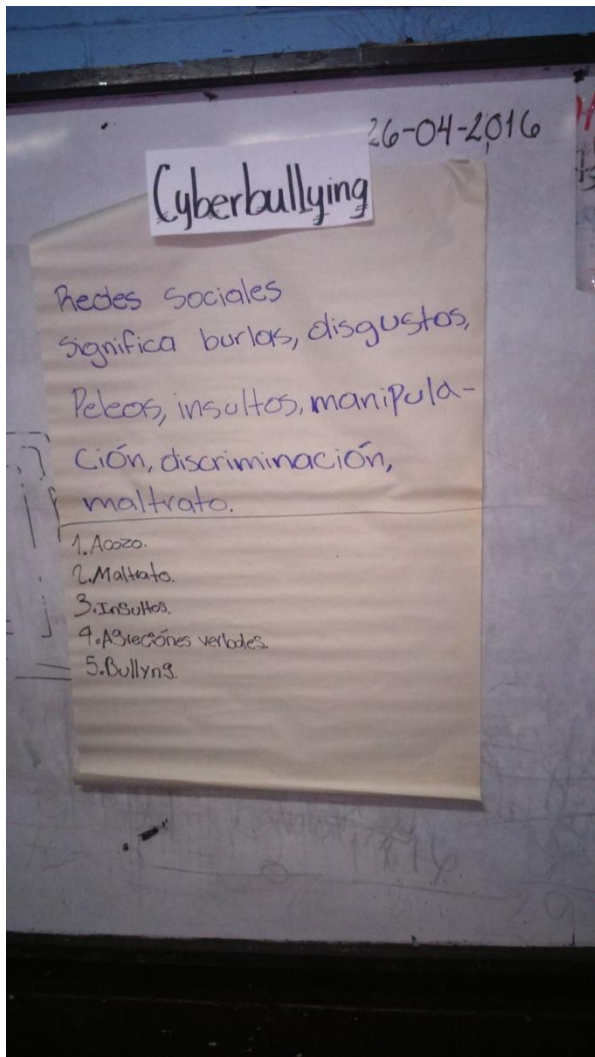 26-04-2016
Cyberbullying
Redes Sociales
Significa burlas, disgustos,
Peleas, insultos, manipula-
ción, discriminación,
maltrato.
1. Acozo.
2. Maltrato.
3. Insultos.
4. Agreciónes verbales.
5. Bullyng.